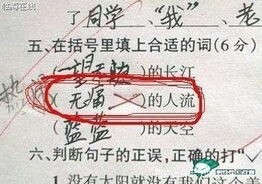 临海在线
了同学、"我"、老
五、在括号里填上合适的词(6分)
(一望无边)的长江
(无痛)的人流
(蓝蓝)的天空
六、判断句子的正误,正确的打"
1.没有太阳就没有我们这个美